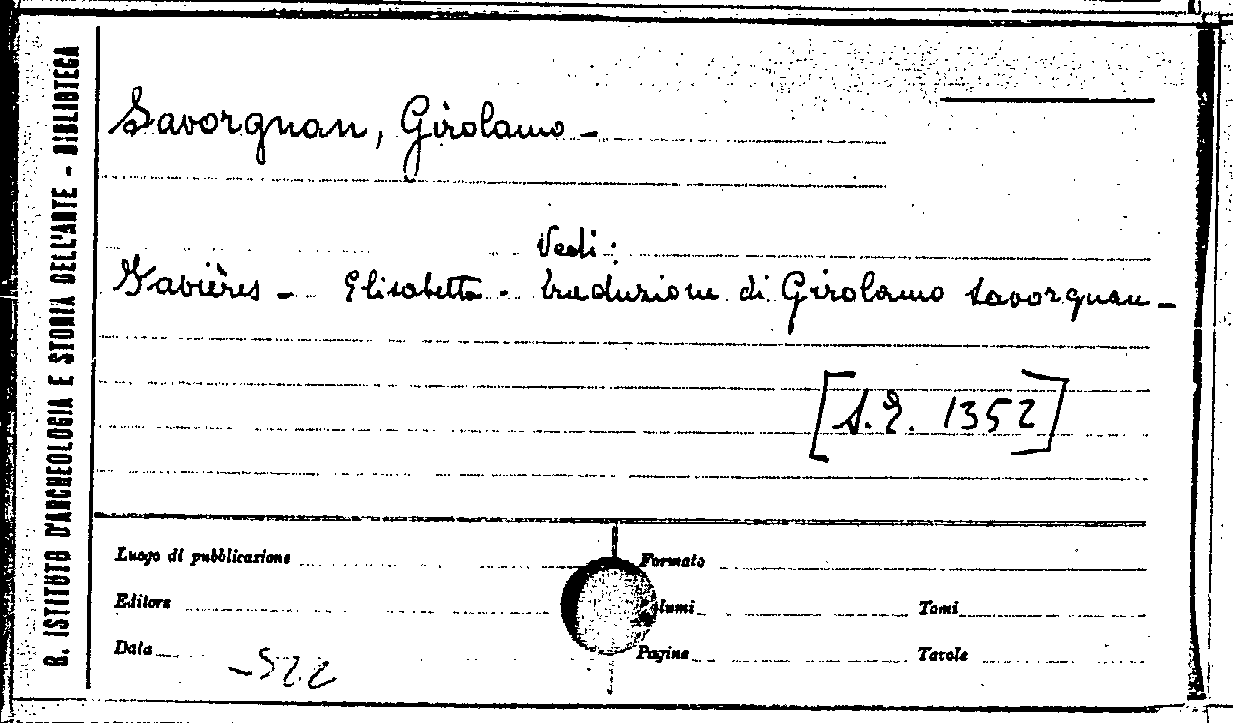 R. ISTITUTO D'ARCHEOLOGIA E STORIA DELL'ARTE - BIBLIOTECA
Savorgnan, Girolamo -
Vedi:
Gavières - Elisabetta - traduzione di Girolamo Savorgnan -
[S.E. 1352]
Luogo di pubblicazione
Formato
Editore
Volumi
Tomi
Data
Pagine
Tavole
-522